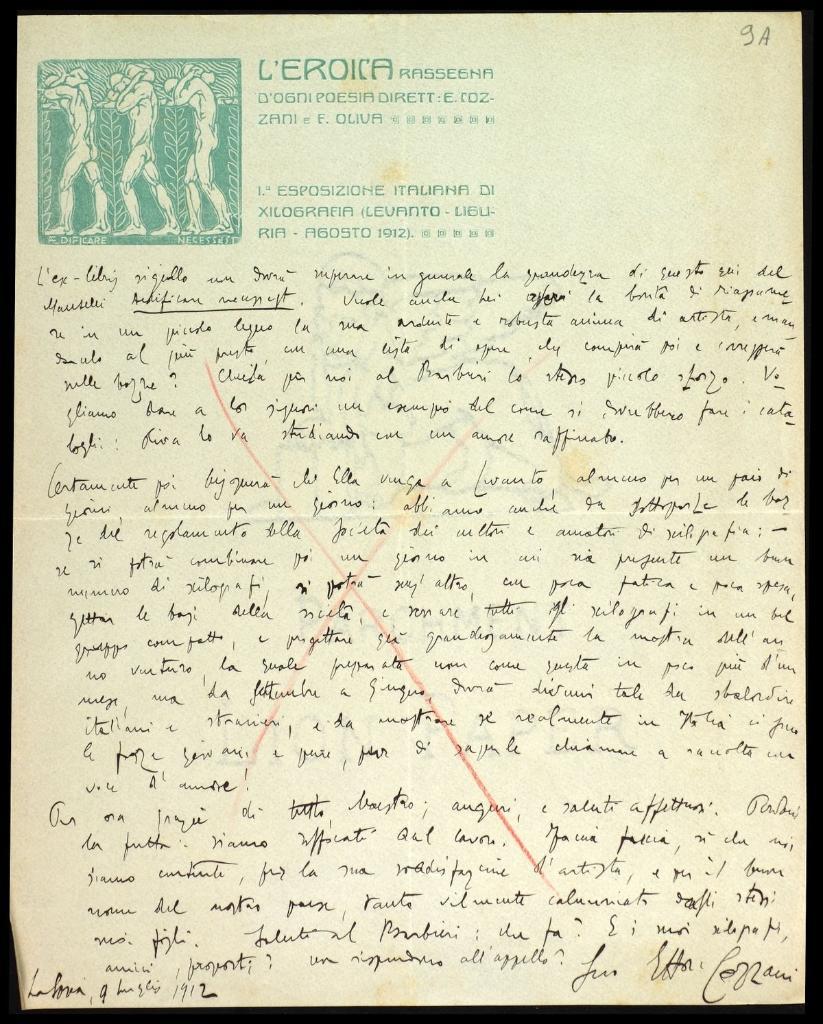 9A
L'EROICA RASSEGNA
D'OGNI POESIA DIRETT: E. COZ-
ZANI E F. OLIVA
1.ª ESPOSIZIONE ITALIANA DI
XILOGRAFIA (LEVANTO - LIGU-
RIA - AGOSTO 1912).
ÆDIFICARE NECESSEST
L'ex-libris sigillo non dovrà superare in generale la grandezza di questo qui del
Mantelli Aedificare necessest. Vuole anche lei la bontà di riassume-
re in un piccolo legno la sua ardente e robusta anima di artista, e man
darcelo al più presto, con una lista di opere, che compirà poi e correggerà
sulle bozze? Chieda per noi al Barbieri lo stesso piccolo sforzo. Vo-
gliamo dare a loro signori un esempio del come si dovrebbero fare i cata-
loghi: Oliva lo va studiando con un amore raffinato.
Certamente poi bisognerà che Ella venga a Levanto, almeno per un paio di
giorni, almeno per un giorno: abbiamo anche da sottoporLe le boz
ze del regolamento della Società dei cultori e amatori di xilografia; —
se si potrà combinare poi un giorno in cui sia presente un buon
numero di xilografi, si potrà senz'altro, con poca fatica e poca spesa,
gettare le basi della società, e serrare tutti gli xilografi in un bel
gruppo compatto, e progettare già grandiosamente la mostra dell'an
no venturo, la quale preparata non come questa in poco più d'un
mese, ma da settembre a giugno, dovrà divenir tale da sbalordire
italiani e stranieri, e da mostrare se realmente in Italia ci sono
le forze giovani e pure, pur di saperle chiamare a raccolta con
voce d'amore!
Per ora grazie di tutto, Maestro; auguri, e saluti affettuosi. Perdoni
la fretta: siamo soffocati dal lavoro. Faccia faccia, sì che noi
siamo contenti, per la sua soddisfazione d'artista, e per il buon
nome del nostro paese, tanto vilmente calunniato dagli stessi
suoi figli. Saluti al Barbieri: che fa? E i suoi xilografi,
amici, proposti? non rispondono all'appello? Suo Ettore Cozzani
La Spezia, 9 Luglio 1912